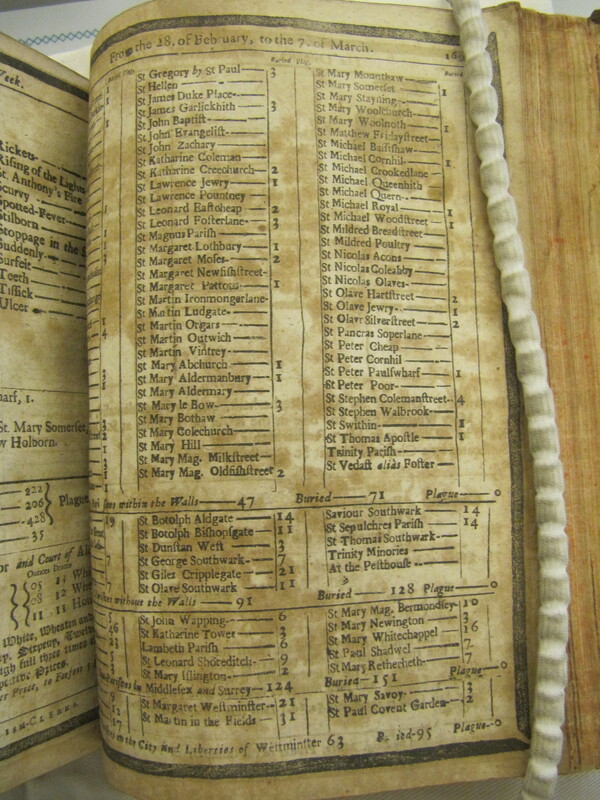 From the 28. of February, to the 7. of March.
Buried Plag.
St Gregory by St Paul 3
St Hellen
St James Duke Place
St James Garlickhith 3
St John Baptist
St John Evangelist
St John Zachary
St Katharine Coleman
St Katharine Creechurch 2
St Lawrence Jewry 1
St Lawrence Pountney
St Leonard Eastcheap 2
St Leonard Fosterlane 3
St Magnus Parish
St Margaret Lothbury 1
St Margaret Moses 2
St Margaret Newfishstreet
St Margaret Pattons 1
St Martin Ironmongerlane
St Martin Ludgate
St Martin Orgars
St Martin Outwich
St Martin Vintrey
St Mary Abchurch 1
St Mary Aldermanbury 1
St Mary Aldermary
St Mary le Bow 3
St Mary Bothaw
St Mary Colechurch
St Mary Hill
St Mary Mag. Milkstreet
St Mary Mag. Oldfishstreet 2
Buried
St Mary Mounthaw
St Mary Somerset 1
St Mary Stayning
St Mary Woolchurch
St Mary Woolnoth 1
St Matthew Fridaystreet
St Michael Bassishaw
St Michael Cornhil 1
St Michael Crookedlane
St Michael Queenhith
St Michael Quern
St Michael Royal
St Michael Woodstreet 1
St Mildred Breadstreet 1
St Mildred Poultry
St Nicolas Acons
St Nicolas Coleabby
St Nicolas Olaves
St Olave Hartstreet 2
St Olave Jewry 1
St Olave Silverstreet 2
St Pancras Soperlane
St Peter Cheap
St Peter Cornhil
St Peter Paulswharf 1
St Peter Poor
St Stephen Colemanstreet 4
St Stephen Walbrook
St Swithin 1
St Thomas Apostle 1
Trinity Parish
St Vedast alias Foster
within the Walls 47 Buried 71 Plague 0
St Botolph Aldgate 14
St Botolph Bishopsgate 11
St Dunstan West 3
St George Southwark 7
St Giles Cripplegate 21
St Olave Southwark 11
Saviour Southwark 14
St Sepulchres Parish 14
St Thomas Southwark
Trinity Minories
At the Pesthouse
without the Walls 91 Buried 128 Plague 0
St John Wapping 6
St Katharine Tower 3
Lambeth Parish 6
St Leonard Shoreditch 9
St Mary Islington 2
St Mary Mag. Bermondsey 10
St Mary Newington 3
St Mary Whitechappel 16
St Paul Shadwel 7
St Mary Retherheth 7
Middlesex and Surrey 124 Buried 151 Plague 0
St Margaret Westminster 21
St Martin in the Fields 31
St Mary Savoy 3
St Paul Covent Garden 2
the City and Liberties of Westminster 63 95 Plague 0
Week.
Rising of the Lights
St. Anthony's Fire
Spotted-Fever
Stilborn
Stoppage in the
Suddenly
Surfeit
Teeth
Tissick
Ulcer
St. Mary Somerset,
Holborn.
222
206
428
Plague
35